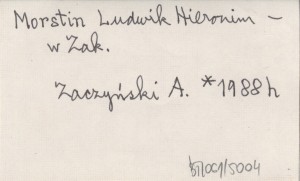 Morstin Ludwik Hieronim –
w Zak.
Zaczyński A. *1988 h
/001/5004